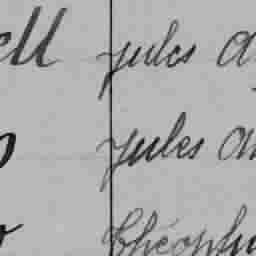 ell jules a
jules an
théophi